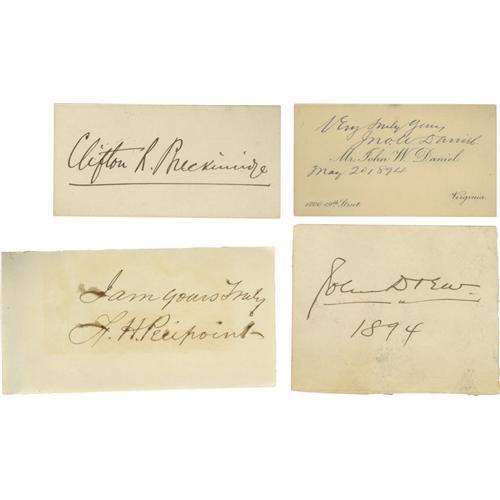 Clifton R. Breckinridge
Very truly yours,
Jno. W. Daniel
Mr. John W. Daniel
May 20 1894
1700-19th Street.
Virginia.
I am yours truly
F. H. Peirpoint
John Drew
1894